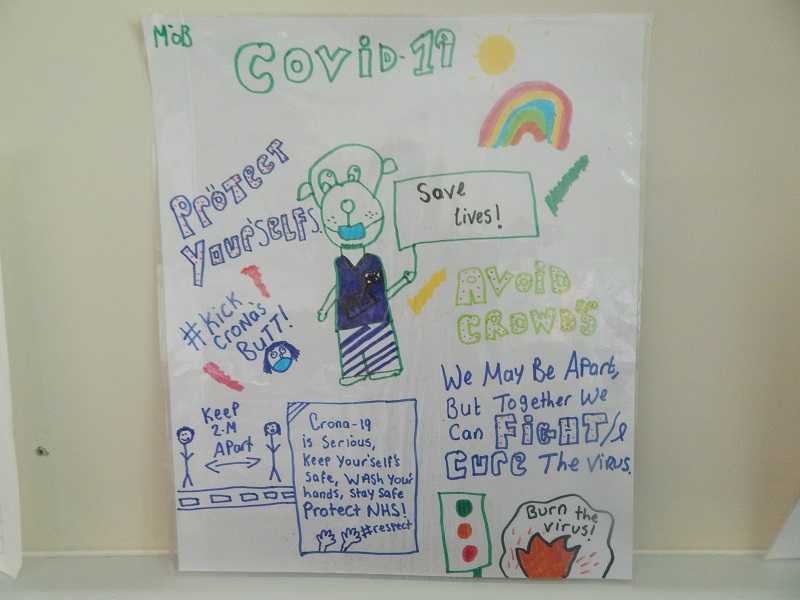 MOB
Covid-19
Protect
Your'selfs.
Save
lives!
#Kick
Crona's
BUTT!
Avoid
CROWDS
We May Be Apart,
But Together We
Can FiGHT/&
CURE The Virus.
Keep
2-M
APart
Crona-19
is Serious,
Keep Your'self's
Safe, WAsh Your
hands, Stay Safe
Protect NHS!
#respect
Burn the
virus!